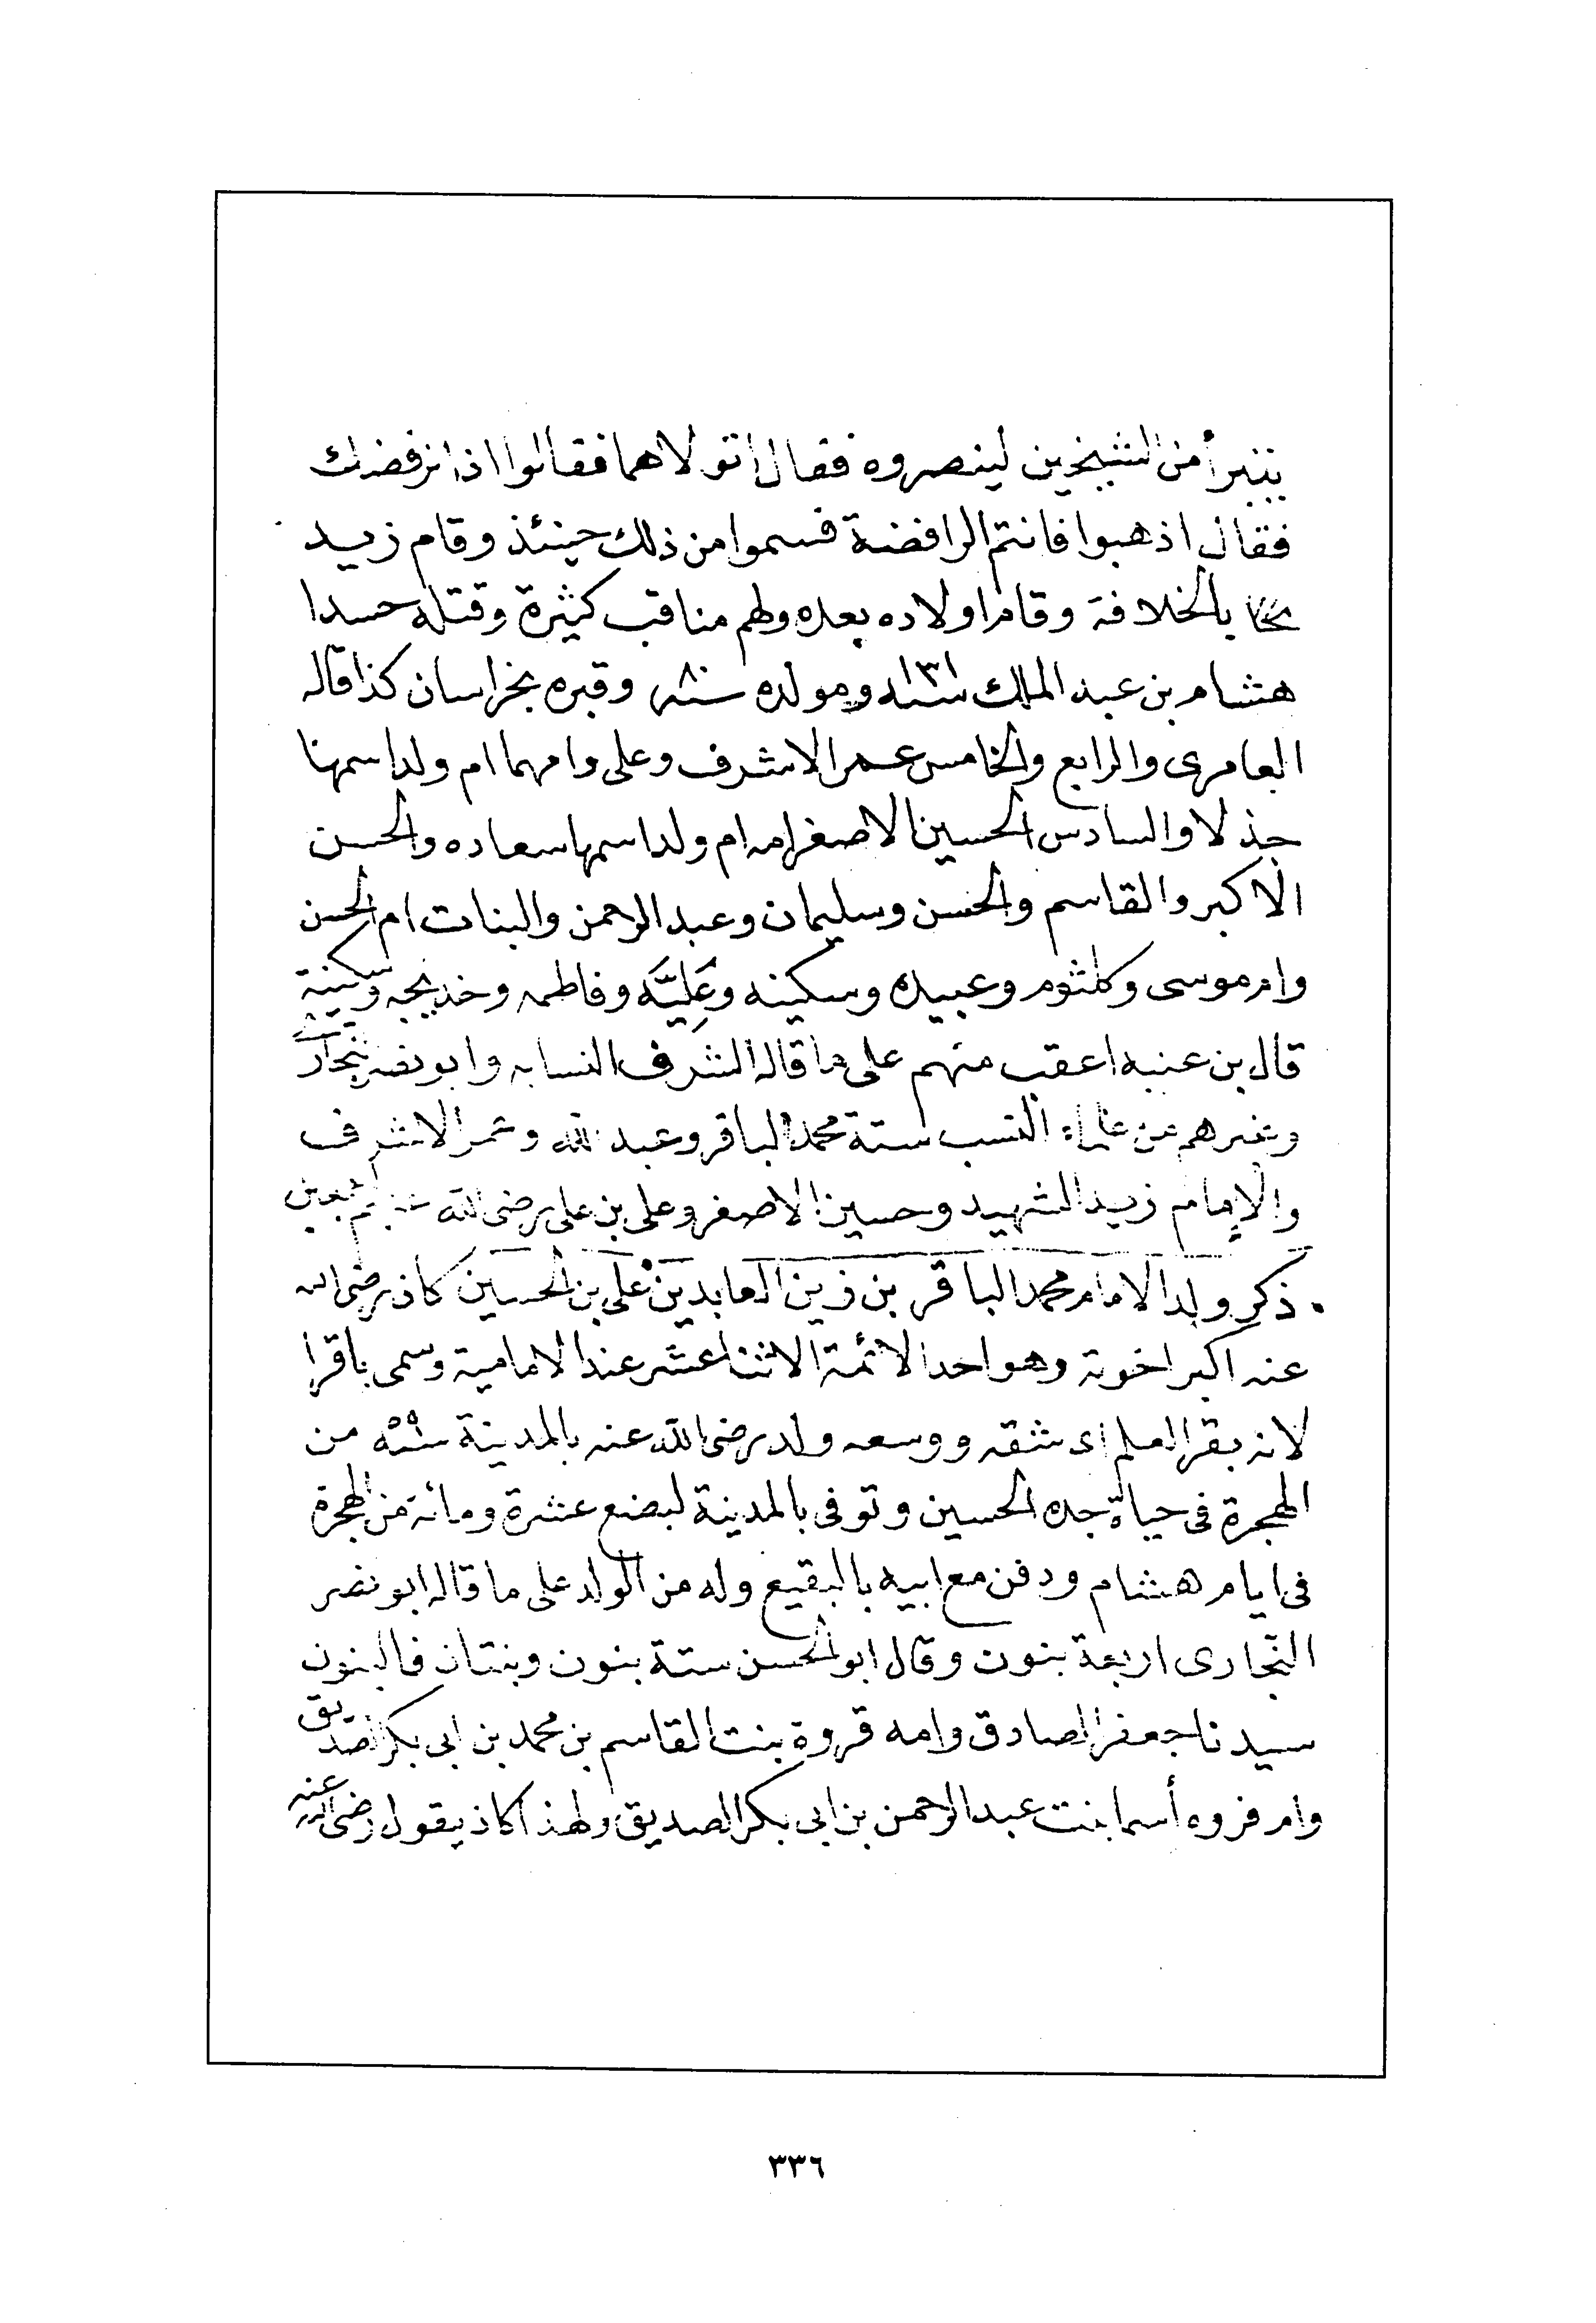 يتبرأ من الشيخين لينصروه فقال اتولاهما فقالوا اذا نرفضك
فقال اذهبوا فانتم الرافضة فسموا من ذلك حينئذ وقام زيد
بالخلافة وقام اولاده بعده ولهم مناقب كثيرة وقتله حسدا
هشام بن عبد الملك سنة ١٣١ ومولده وقبره بخراسان كذا قاله
العامرى والرابع والخامس عمر الاشرف وعلى وامهما ام ولد اسمها
جذلا والسادس الحسين الاصغر امه ام ولد اسمها سعاده والحسن
الاكبر والقاسم والحسن وسليمان وعبد الرحمن والبنات ام الحسن
وام موسى وكلثوم وعبيده وسكينه وعَلِيَّه وفاطمه وخديجه وسكينة
قال بن عنبه اعقب منهم على ما قاله الشرف النسابه وابو نصر
وغيرهم من علماء النسب ستة محمد الباقر وعبد الله وعمر الاشرف
والإمام زيد الشهيد وحسين الاصغر وعلى بن على رضى الله عنهم اجمعين
ذكر ولد الامام محمد الباقر بن زين العابدين على بن الحسين كان رضى الله
عنه اكبر اخوته وهو احد الائمة الاثنا عشر عند الامامية وسمى باقرا
لانه بقر العلم اى شقه ووسعه ولد رضى الله عنه بالمدينة من
الهجرة فى حياة جده الحسين وتوفى بالمدينة لبضع عشرة ومائة من الهجرة
فى ايام هشام ودفن مع ابيه بالبقيع وله من الولد على ما قاله ابو نصر
النجارى اربعة بنون وقال ابو الحسن ستة بنون وبنتان فالبنون
سيدنا جعفر الصادق وامه قروة بنت القاسم بن محمد بن ابى بكر الصديق
وام فروه أسما بنت عبد الرحمن بن ابى بكر الصديق ولهذا كان يقول رضى الله عنه
٣٣٦